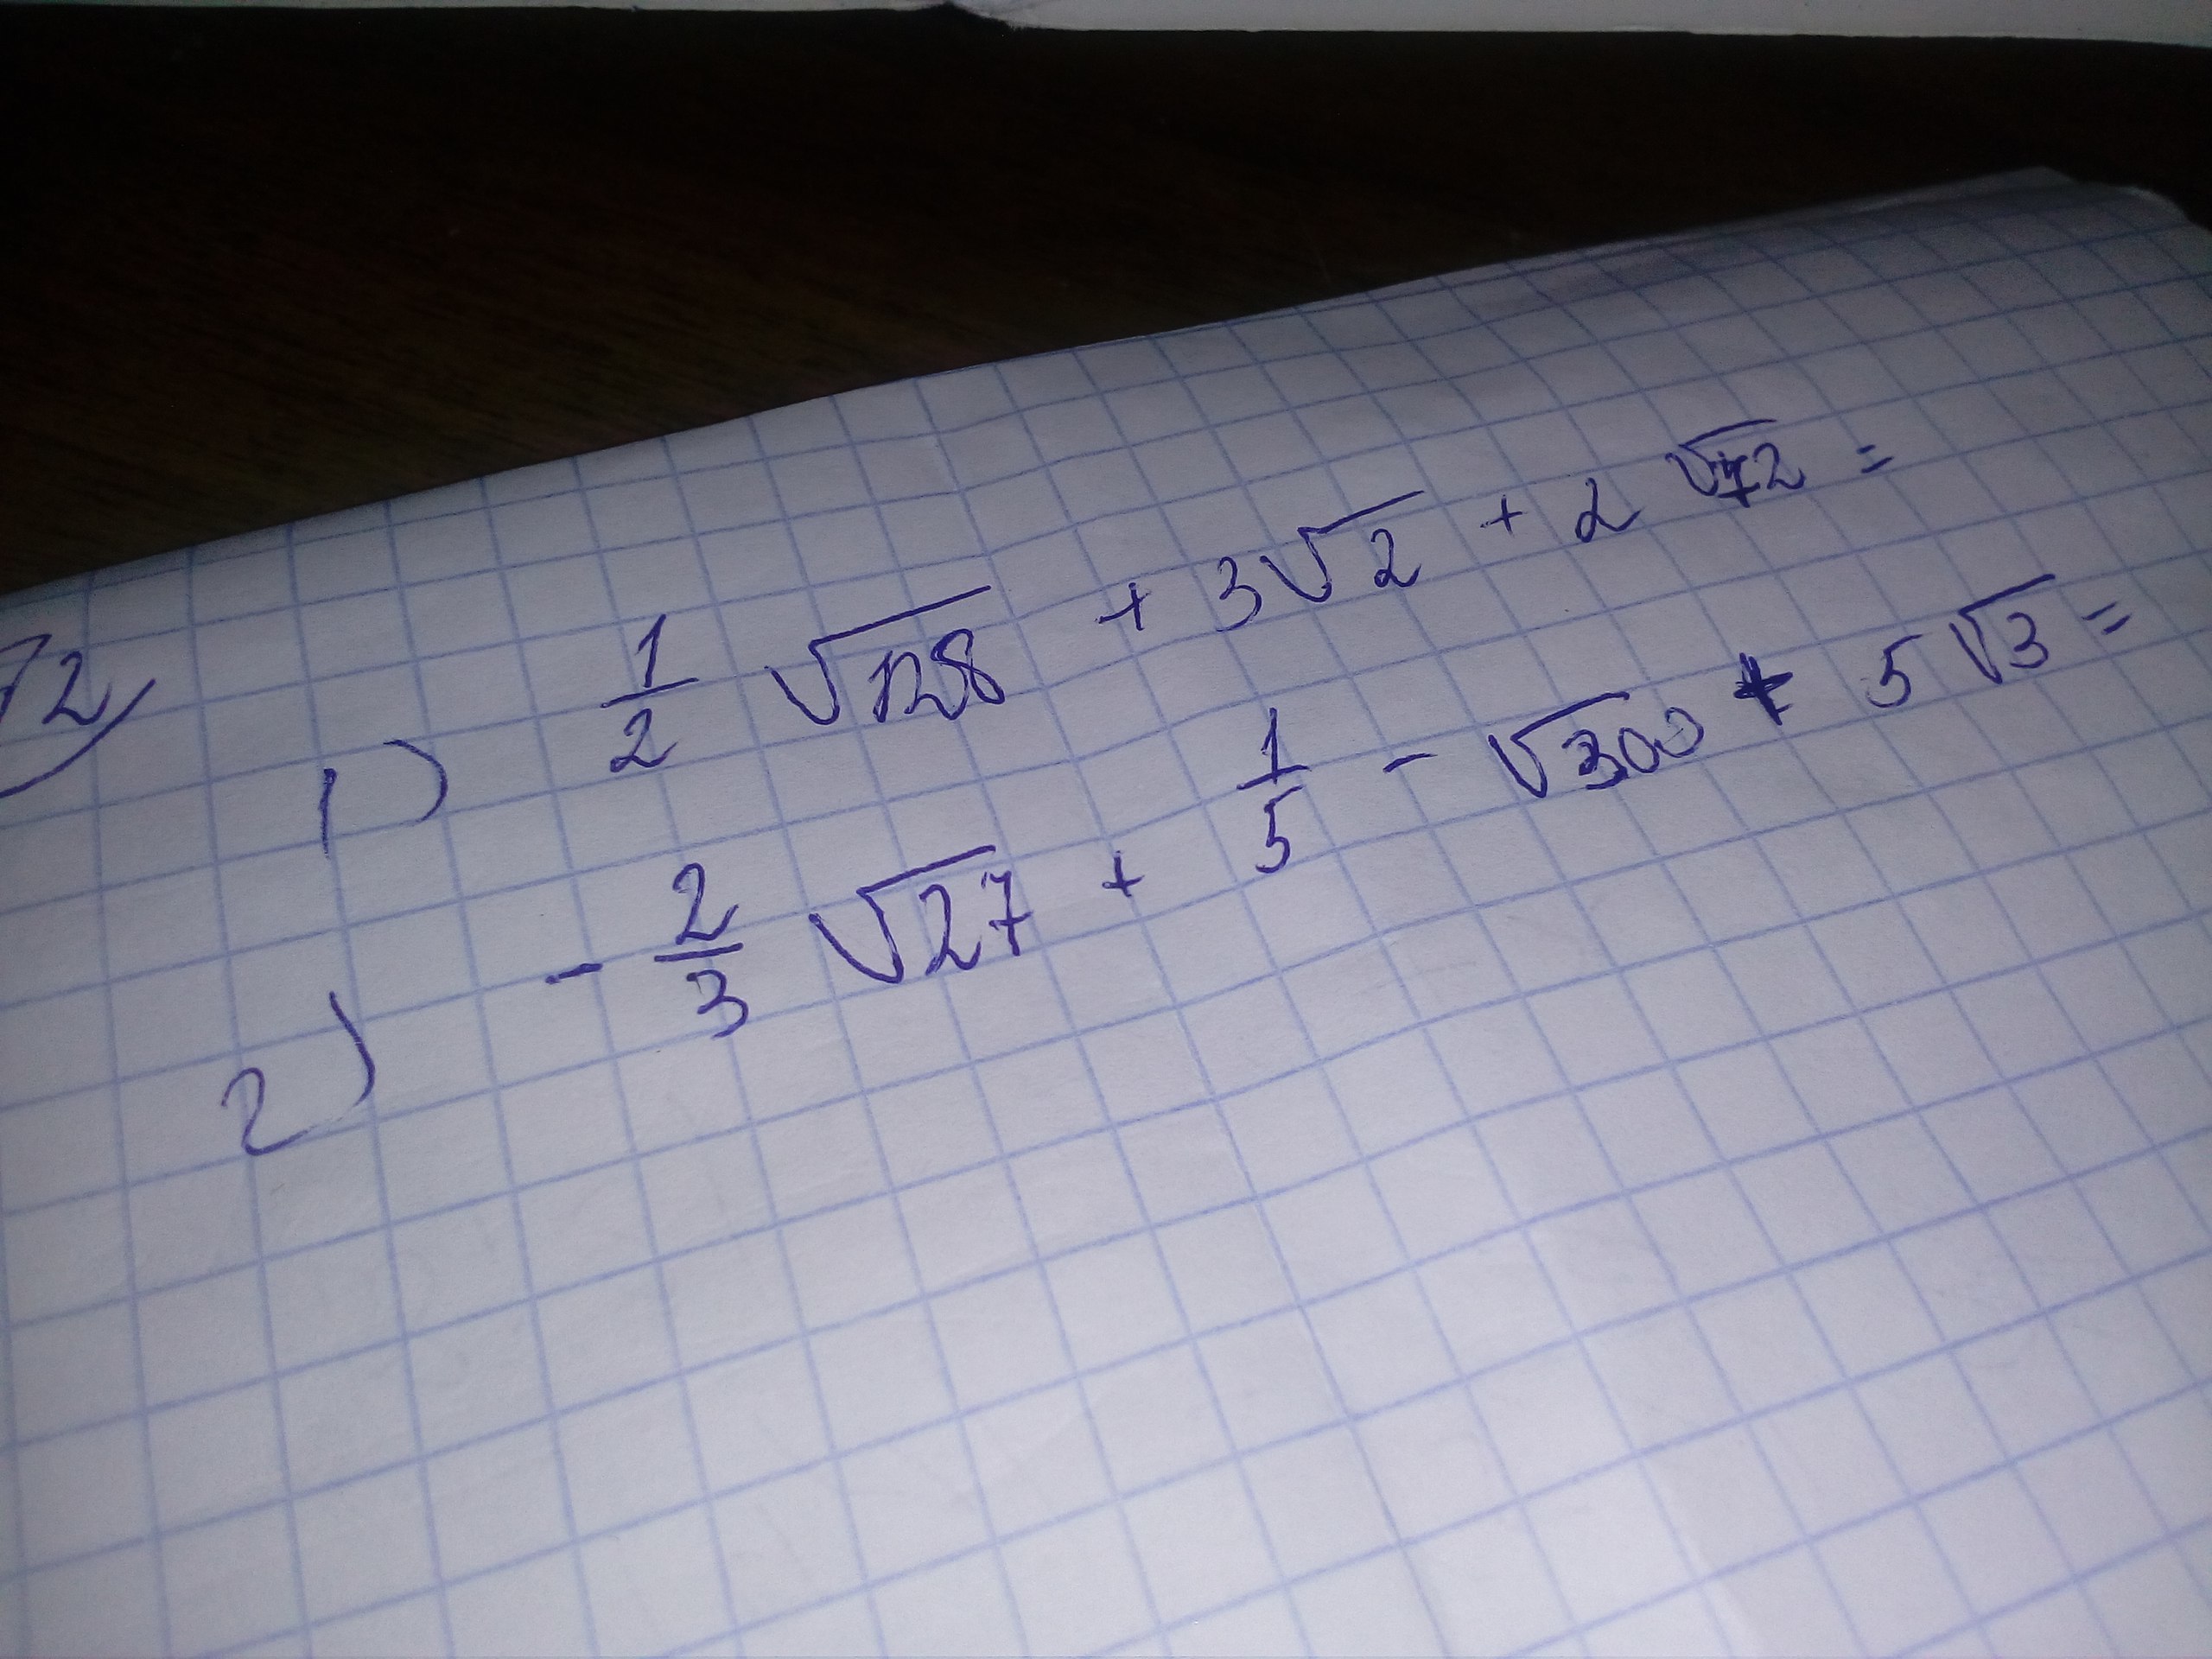 72)
1) 1/2 √128 + 3√2 + 2 √72 =
2) - 2/3 √27 + 1/5 - √300 + 5 √3 =